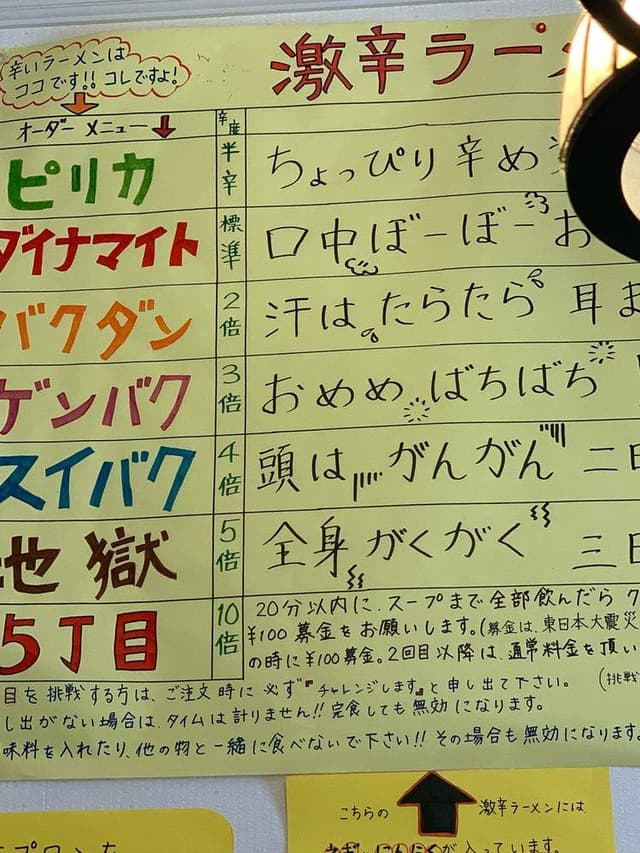 辛いラーメンは
ココです!! コレですよ!
激辛ラーメ
オーダー メニュー
辛度
ピリカ 半辛 ちょっぴり辛め
ダイナマイト 標準 口中ぼーぼー お
バクダン 2倍 汗は たらたら 耳ま
ゲンバク 3倍 おめめ ばちばち
スイバク 4倍 頭は がんがん 二日
地獄 5倍 全身 がくがく 三日
5丁目 10倍 20分以内に、スープまで全部飲んだら
¥100募金をお願いします。(募金は、東日本大震災
の時に¥100募金。2回目以降は、通常料金を頂い
目を挑戦する方は、ご注文時に必ず『チャレンジします』と申し出て下さい。 (挑戦
し出がない場合は、タイムは計りません!! 完食しても無効になります。
味料を入れたり、他の物と一緒に食べないで下さい!! その場合も無効になります。
こちらの 激辛ラーメンには
にんにくが入っています。